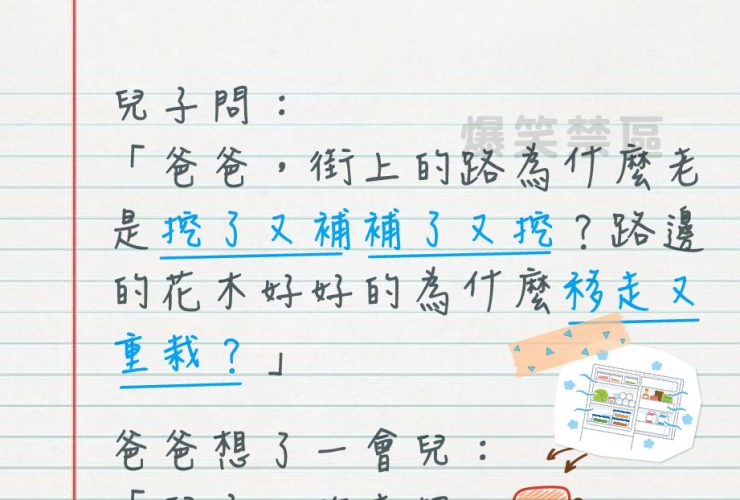 爆笑禁區
兒子問：
「爸爸，街上的路為什麼老
是挖了又補補了又挖？路邊
的花木好好的為什麼移走又
重栽？」
爸爸想了一會兒：